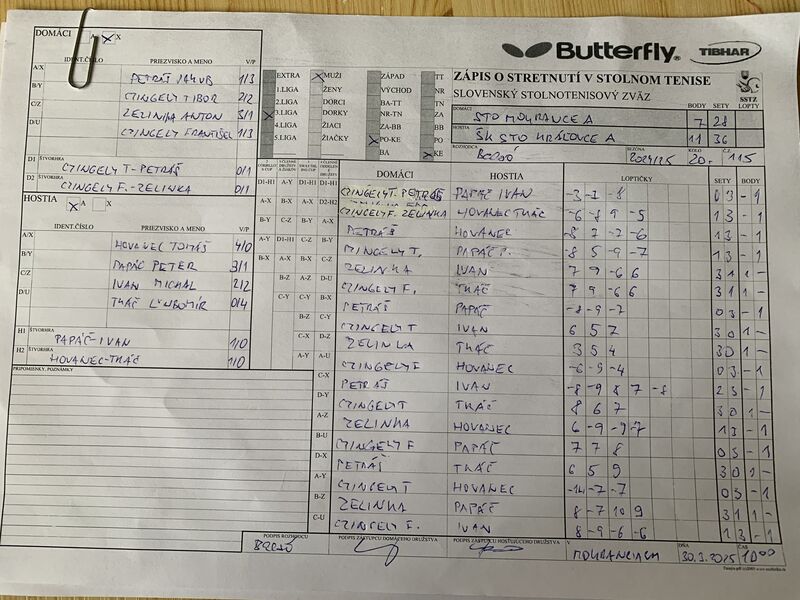 DOMÁCI A X
Butterfly. TIBHAR
IDENT.ČÍSLO PRIEZVISKO A MENO V/P
A/X PETRÁŠ JAKUB 1/3
B/Y CZINGELY TIBOR 2/2
C/Z ZELINKA ANTON 3/1
D/U CZINGELY FRANTIŠEK 1/3
D1 ŠTVORHRA CZINGELY T-PETRÁŠ 0/1
D2 ŠTVORHRA CZINGELY F.-ZELINKA 0/1
EXTRA MUŽI ZÁPAD TT
1.LIGA ŽENY VÝCHOD NR
2.LIGA DORCI BA-TT TN
3.LIGA DORKY NR-TN ZA
4.LIGA ŽIACI ZA-BB BB
5.LIGA ŽIAČKY PO-KE PO
BA KE
ZÁPIS O STRETNUTÍ V STOLNOM TENISE
SLOVENSKÝ STOLNOTENISOVÝ ZVÄZ
SSTZ
BODY SETY LOPTY
DOMÁCI STO MOKRANCE A 7 28
HOSTIA ŠK STO KRÁĽOVCE A 11 36
ROZHODCA SEZÓNA 2024/25 KOLO 20. Č. 115
HOSTIA A X
IDENT.ČÍSLO PRIEZVISKO A MENO V/P
A/X HOVANEC TOMÁŠ 4/0
B/Y PAPÁČ PETER 3/1
C/Z IVAN MICHAL 2/2
D/U TKÁČ ĽUBOMÍR 0/4
H1 ŠTVORHRA PAPÁČ-IVAN 1/0
H2 ŠTVORHRA HOVANEC-TKÁČ 1/0
PRIPOMIENKY, POZNÁMKY
DOMÁCI HOSTIA LOPTIČKY SETY BODY
CZINGELY T. PETRÁŠ PAPÁČ IVAN -3 -1 -8 0 3 - 1
CZINGELY F. ZELINKA HOVANEC TKÁČ -6 -8 9 -5 1 3 - 1
PETRÁŠ HOVANEC 1 3 - 1
CZINGELY T. PAPÁČ P. -8 5 -9 -7 1 3 - 1
ZELINKA IVAN 7 9 -6 6 3 1 1 -
CZINGELY F. TKÁČ 7 9 -6 6 3 1 1 -
PETRÁŠ PAPÁČ -8 -9 -7 0 3 - 1
CZINGELY T IVAN 6 5 7 3 0 1 -
ZELINKA TKÁČ 3 5 4 3 0 1 -
CZINGELY F HOVANEC -6 -9 -4 0 3 - 1
PETRÁŠ IVAN -8 -9 8 7 -8 2 3 - 1
CZINGELY T TKÁČ 8 6 7 3 0 1 -
ZELINKA HOVANEC 6 -9 -9 -7 1 3 - 1
CZINGELY F PAPÁČ 7 7 8 0 3 - 1
PETRÁŠ TKÁČ 6 5 9 3 0 1 -
CZINGELY T HOVANEC -14 -7 -7 0 3 - 1
ZELINKA PAPÁČ 8 -7 10 9 3 1 1 -
CZINGELY F. IVAN 8 -9 -6 -6 1 3 - 1
PODPIS ROZHODCU PODPIS ZÁSTUPCU DOMÁCEHO DRUŽSTVA PODPIS ZÁSTUPCU HOSŤUJÚCEHO DRUŽSTVA
V MOKRANCIACH DŇA 30.3.2025 ČAS 10 00